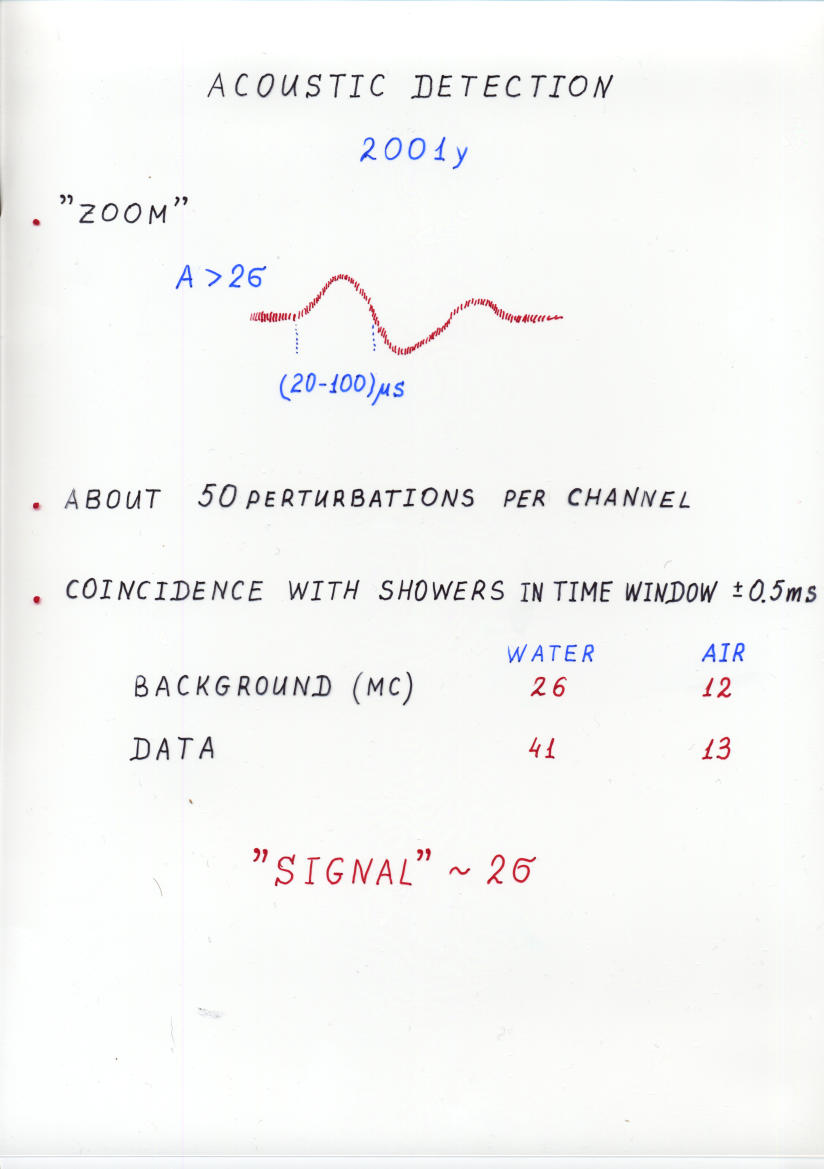 ACOUSTIC DETECTION
2001y
• ”ZOOM”
A > 2σ
(20-100)μs
• ABOUT 50 PERTURBATIONS PER CHANNEL
• COINCIDENCE WITH SHOWERS IN TIME WINDOW ±0.5ms
WATER AIR
BACKGROUND (MC) 26 12
DATA 41 13
”SIGNAL” ~ 2σ